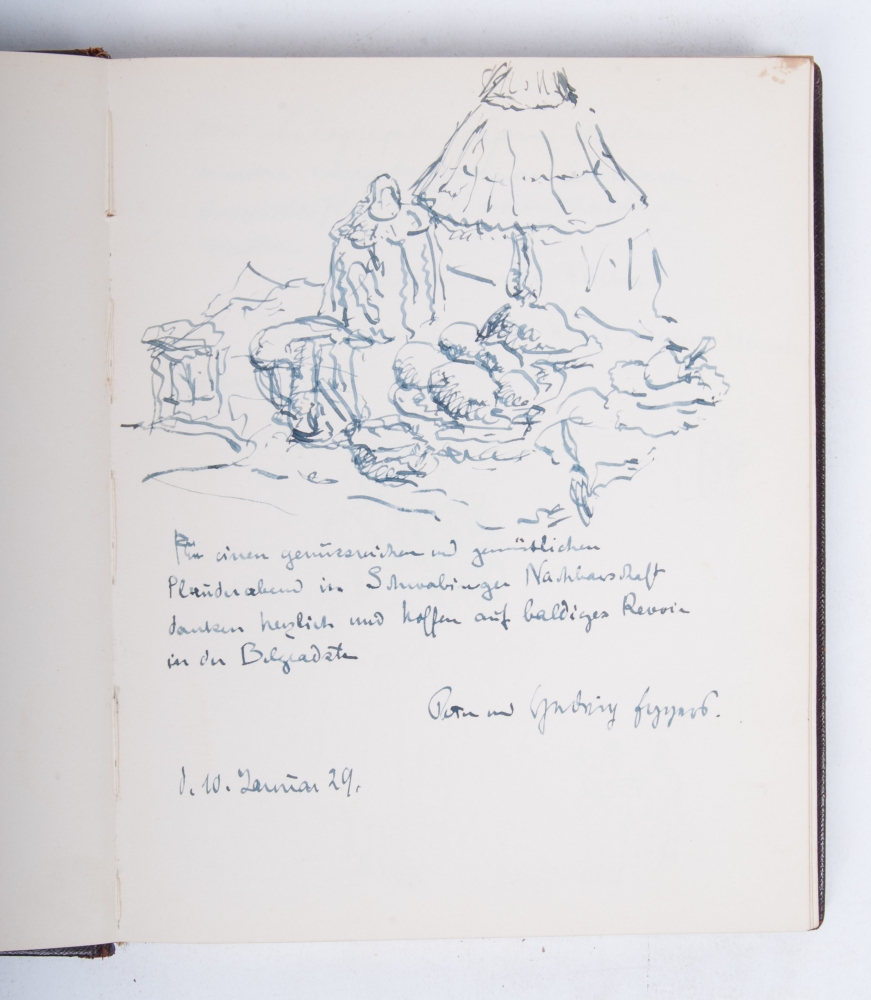 Für einen genussreichen und gemütlichen
Plauderabend in Schwabinger Nachbarschaft
danken herzlich und hoffen auf baldiges Revoir
in der Belgradstr
Peter und Hedwig Eggers.
d. 10. Januar 29.